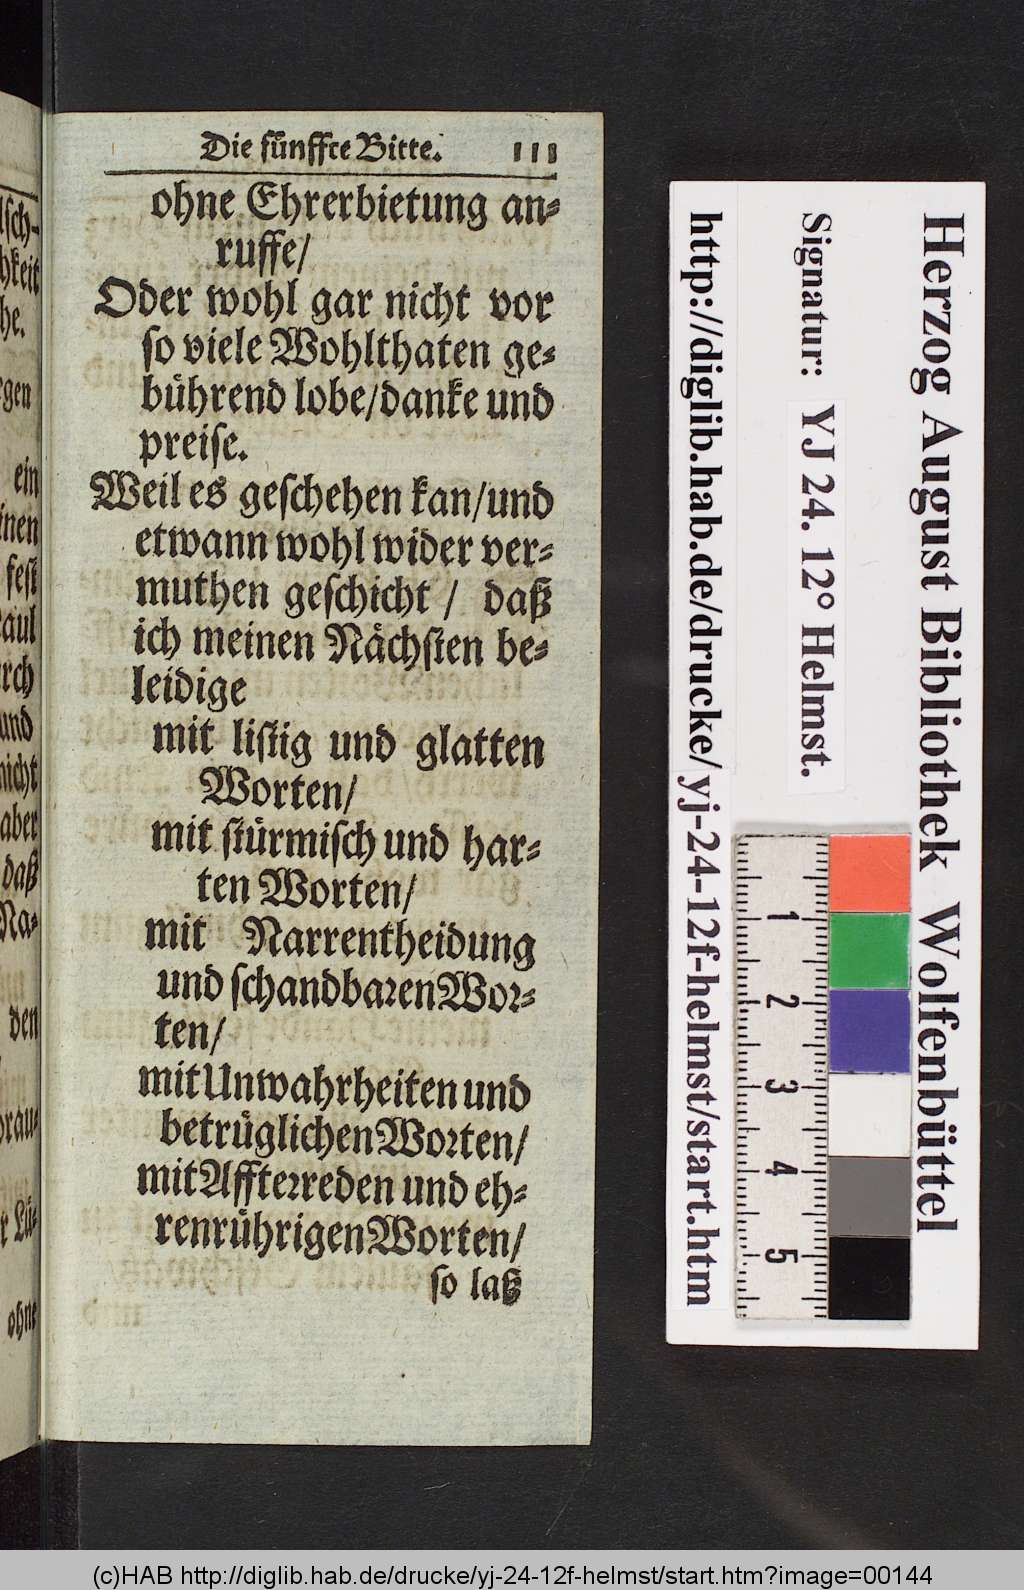 Die fünffte Bitte. 111
ohne Ehrerbietung an-
ruffe/
Oder wohl gar nicht vor
so viele Wohlthaten ge-
bührend lobe/danke und
preise.
Weil es geschehen kan/und
etwann wohl wider ver-
muthen geschicht / daß
ich meinen Nächsten be-
leidige
mit listig und glatten
Worten/
mit stürmisch und har-
ten Worten/
mit Narrentheidung
und schandbaren Wor-
ten/
mit Unwahrheiten und
betrüglichen Worten/
mit Affterreden und eh-
renrührigen Worten/
so laß
hkeit
he.
gen
ein
inen
fest
aul
rch
und
nicht
aber
daß
Na-
den
brau-
r Lü-
ohne
Herzog August Bibliothek Wolfenbüttel
Signatur: YJ 24. 12° Helmst.
http://diglib.hab.de/drucke/yj-24-12f-helmst/start.htm
1
2
3
4
5
(c)HAB http://diglib.hab.de/drucke/yj-24-12f-helmst/start.htm?image=00144